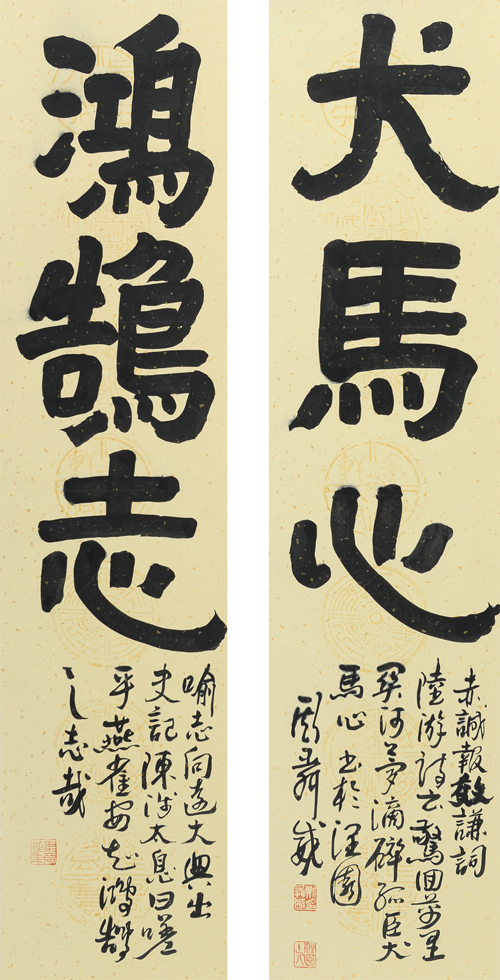 犬馬心
赤誠報效謙詞
陸游詩云驚回萬里
關河夢滴碎孤臣犬
馬心 書於園
鴻鵠志
喻志向遠大典出
史記陳涉太息曰嗟
乎燕雀安知鴻鵠
之志哉